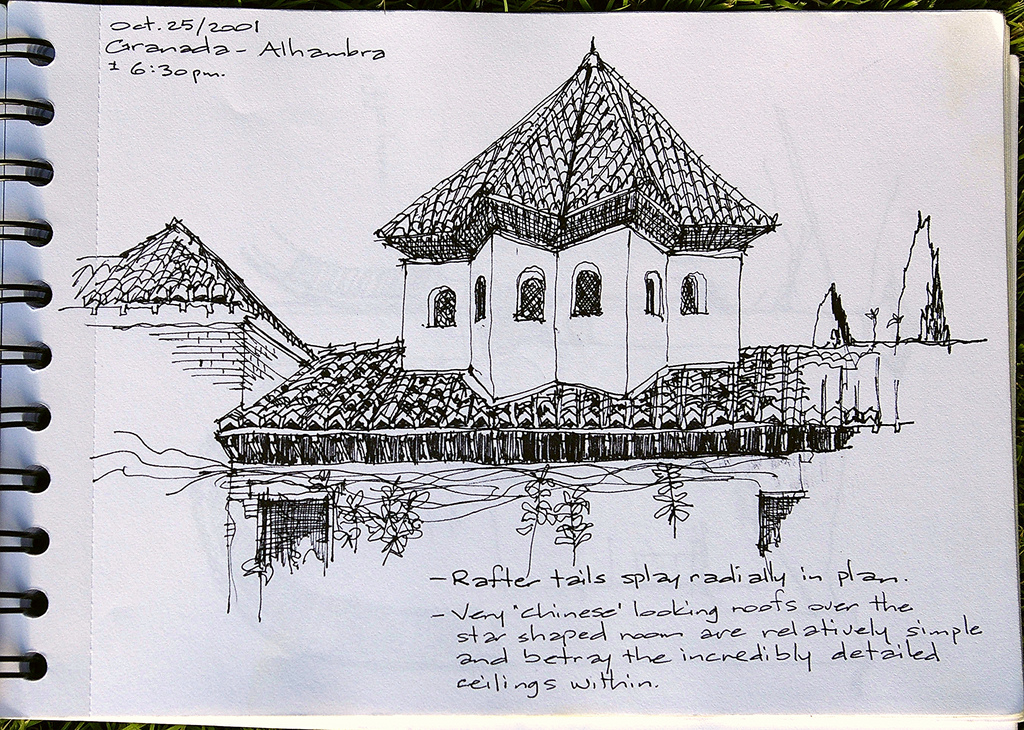 Oct. 25/2001
Granada - Alhambra
± 6:30 pm.
- Rafter tails splay radially in plan.
- Very "chinese' looking roofs over the
star shaped room are relatively simple
and betray the incredibly detailed
ceilings within.